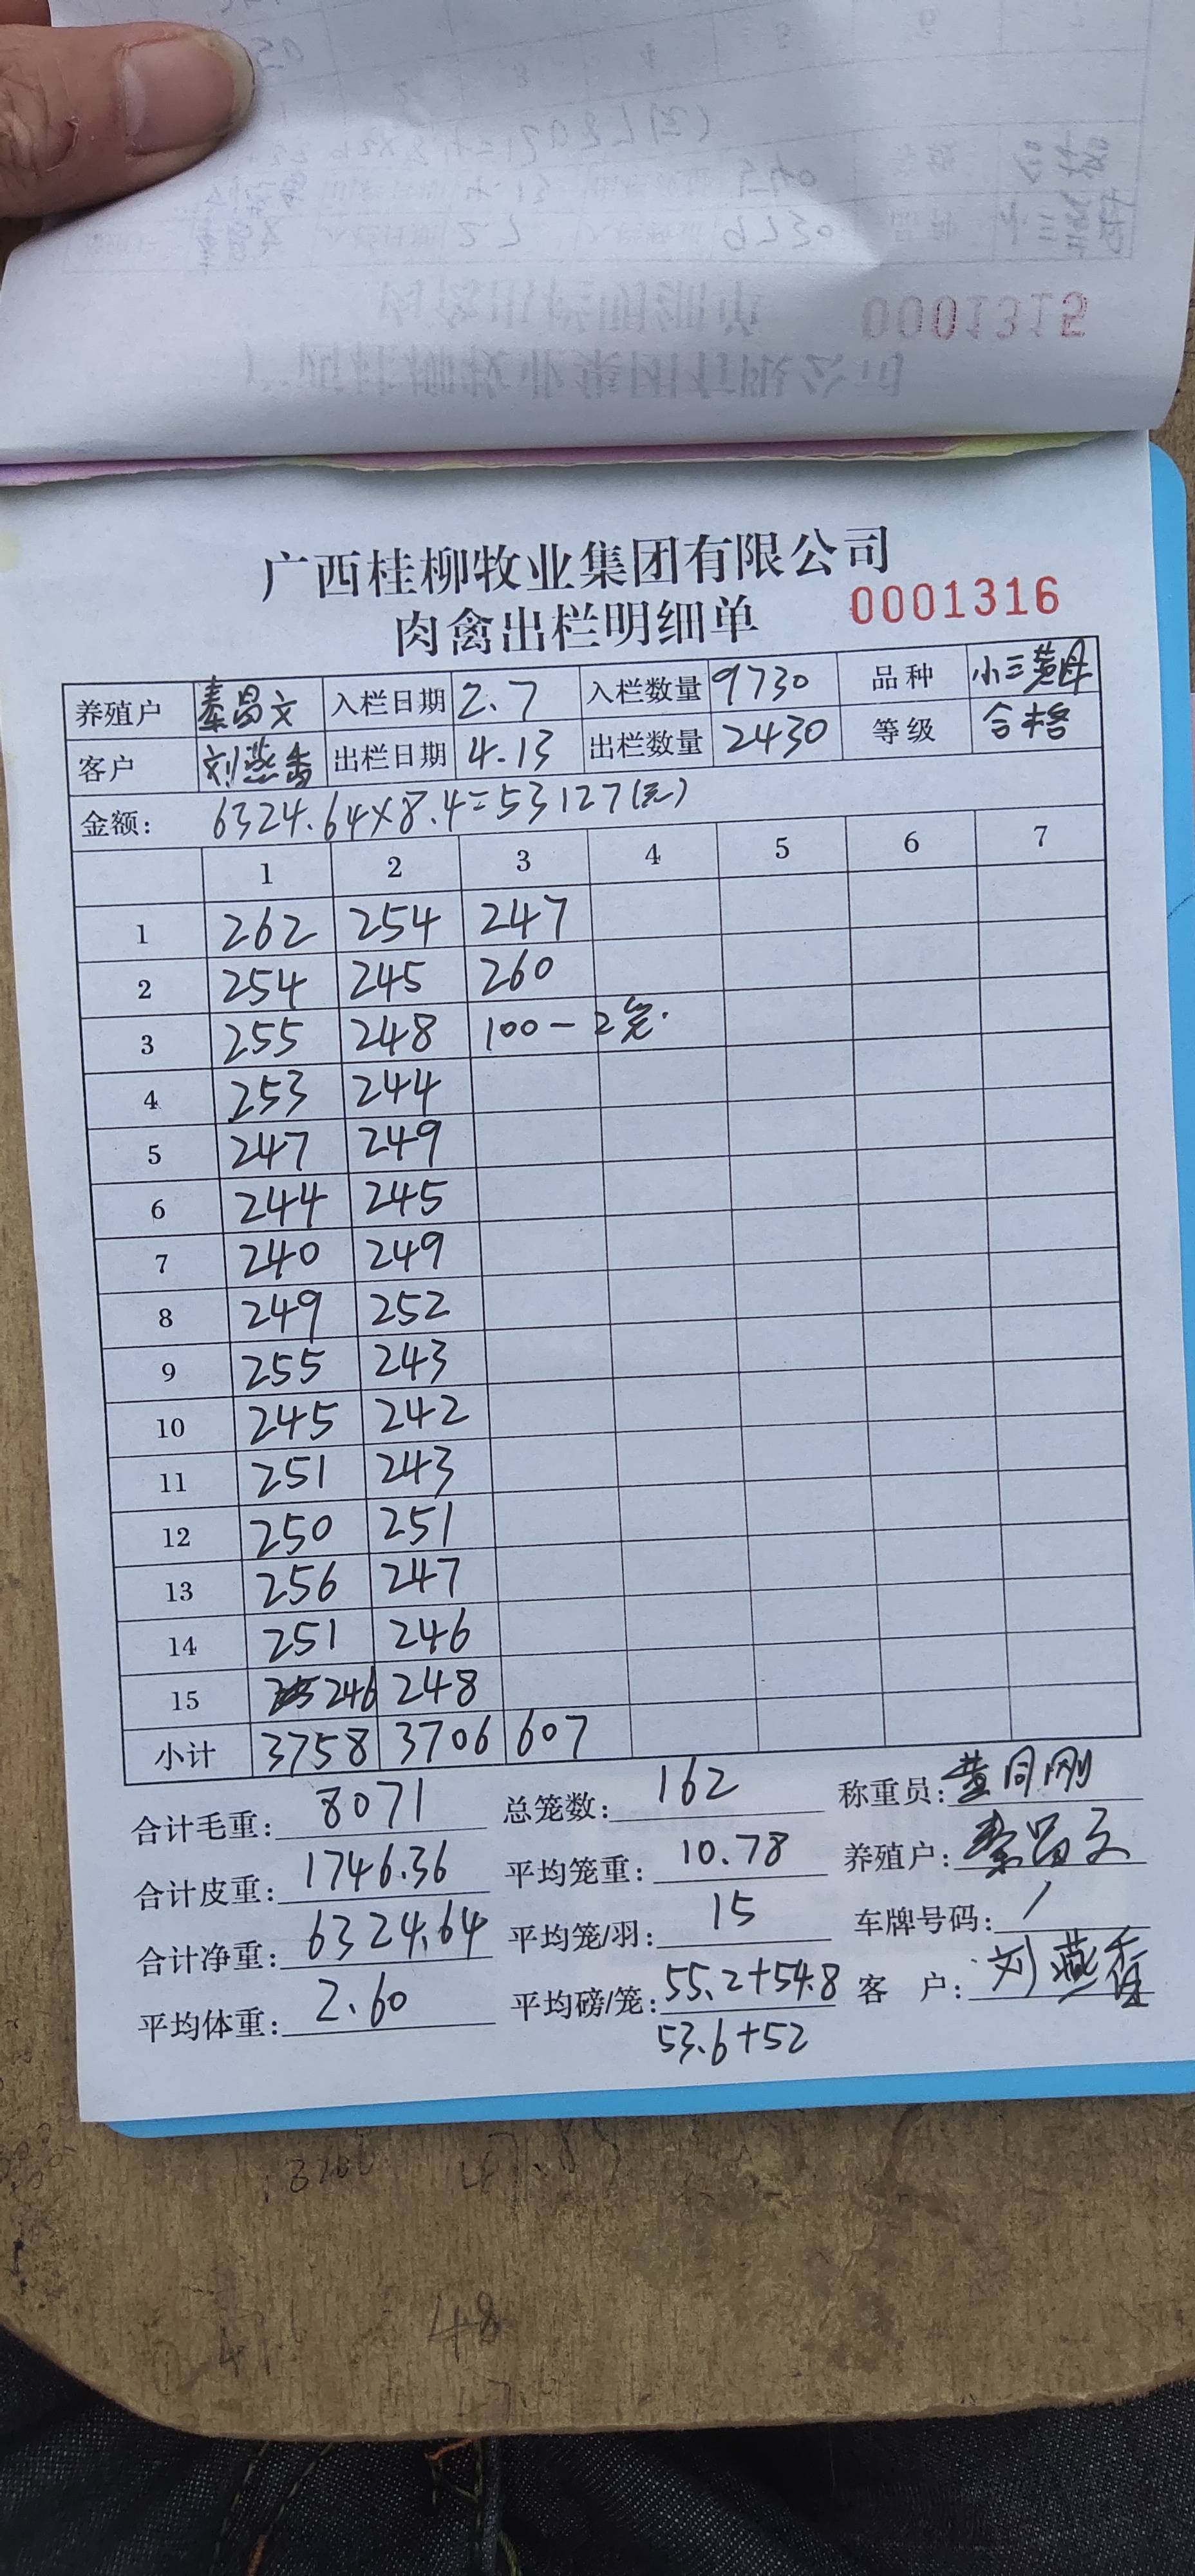 0001315
广西桂柳牧业集团有限公司
肉禽出栏明细单 0001316
养殖户 秦昌文 入栏日期 2.7 入栏数量 9730 品种 小三黄母
客户 刘燕香 出栏日期 4.13 出栏数量 2430 等级 合格
金额: 6324.64×8.4=53127(元)
1 2 3 4 5 6 7
1 262 254 247
2 254 245 260
3 255 248 100-2笼.
4 253 244
5 247 249
6 244 245
7 240 249
8 249 252
9 255 243
10 245 242
11 251 243
12 250 251
13 256 247
14 251 246
15 246 248
小计 3758 3706 607
合计毛重: 8071 总笼数: 162 称重员: 黄同刚
合计皮重: 1746.36 平均笼重: 10.78 养殖户: 秦昌文
合计净重: 6324.64 平均笼/羽: 15 车牌号码: /
平均体重: 2.60 平均磅/笼: 55.2+54.8 客 户: 刘燕香
53.6+52